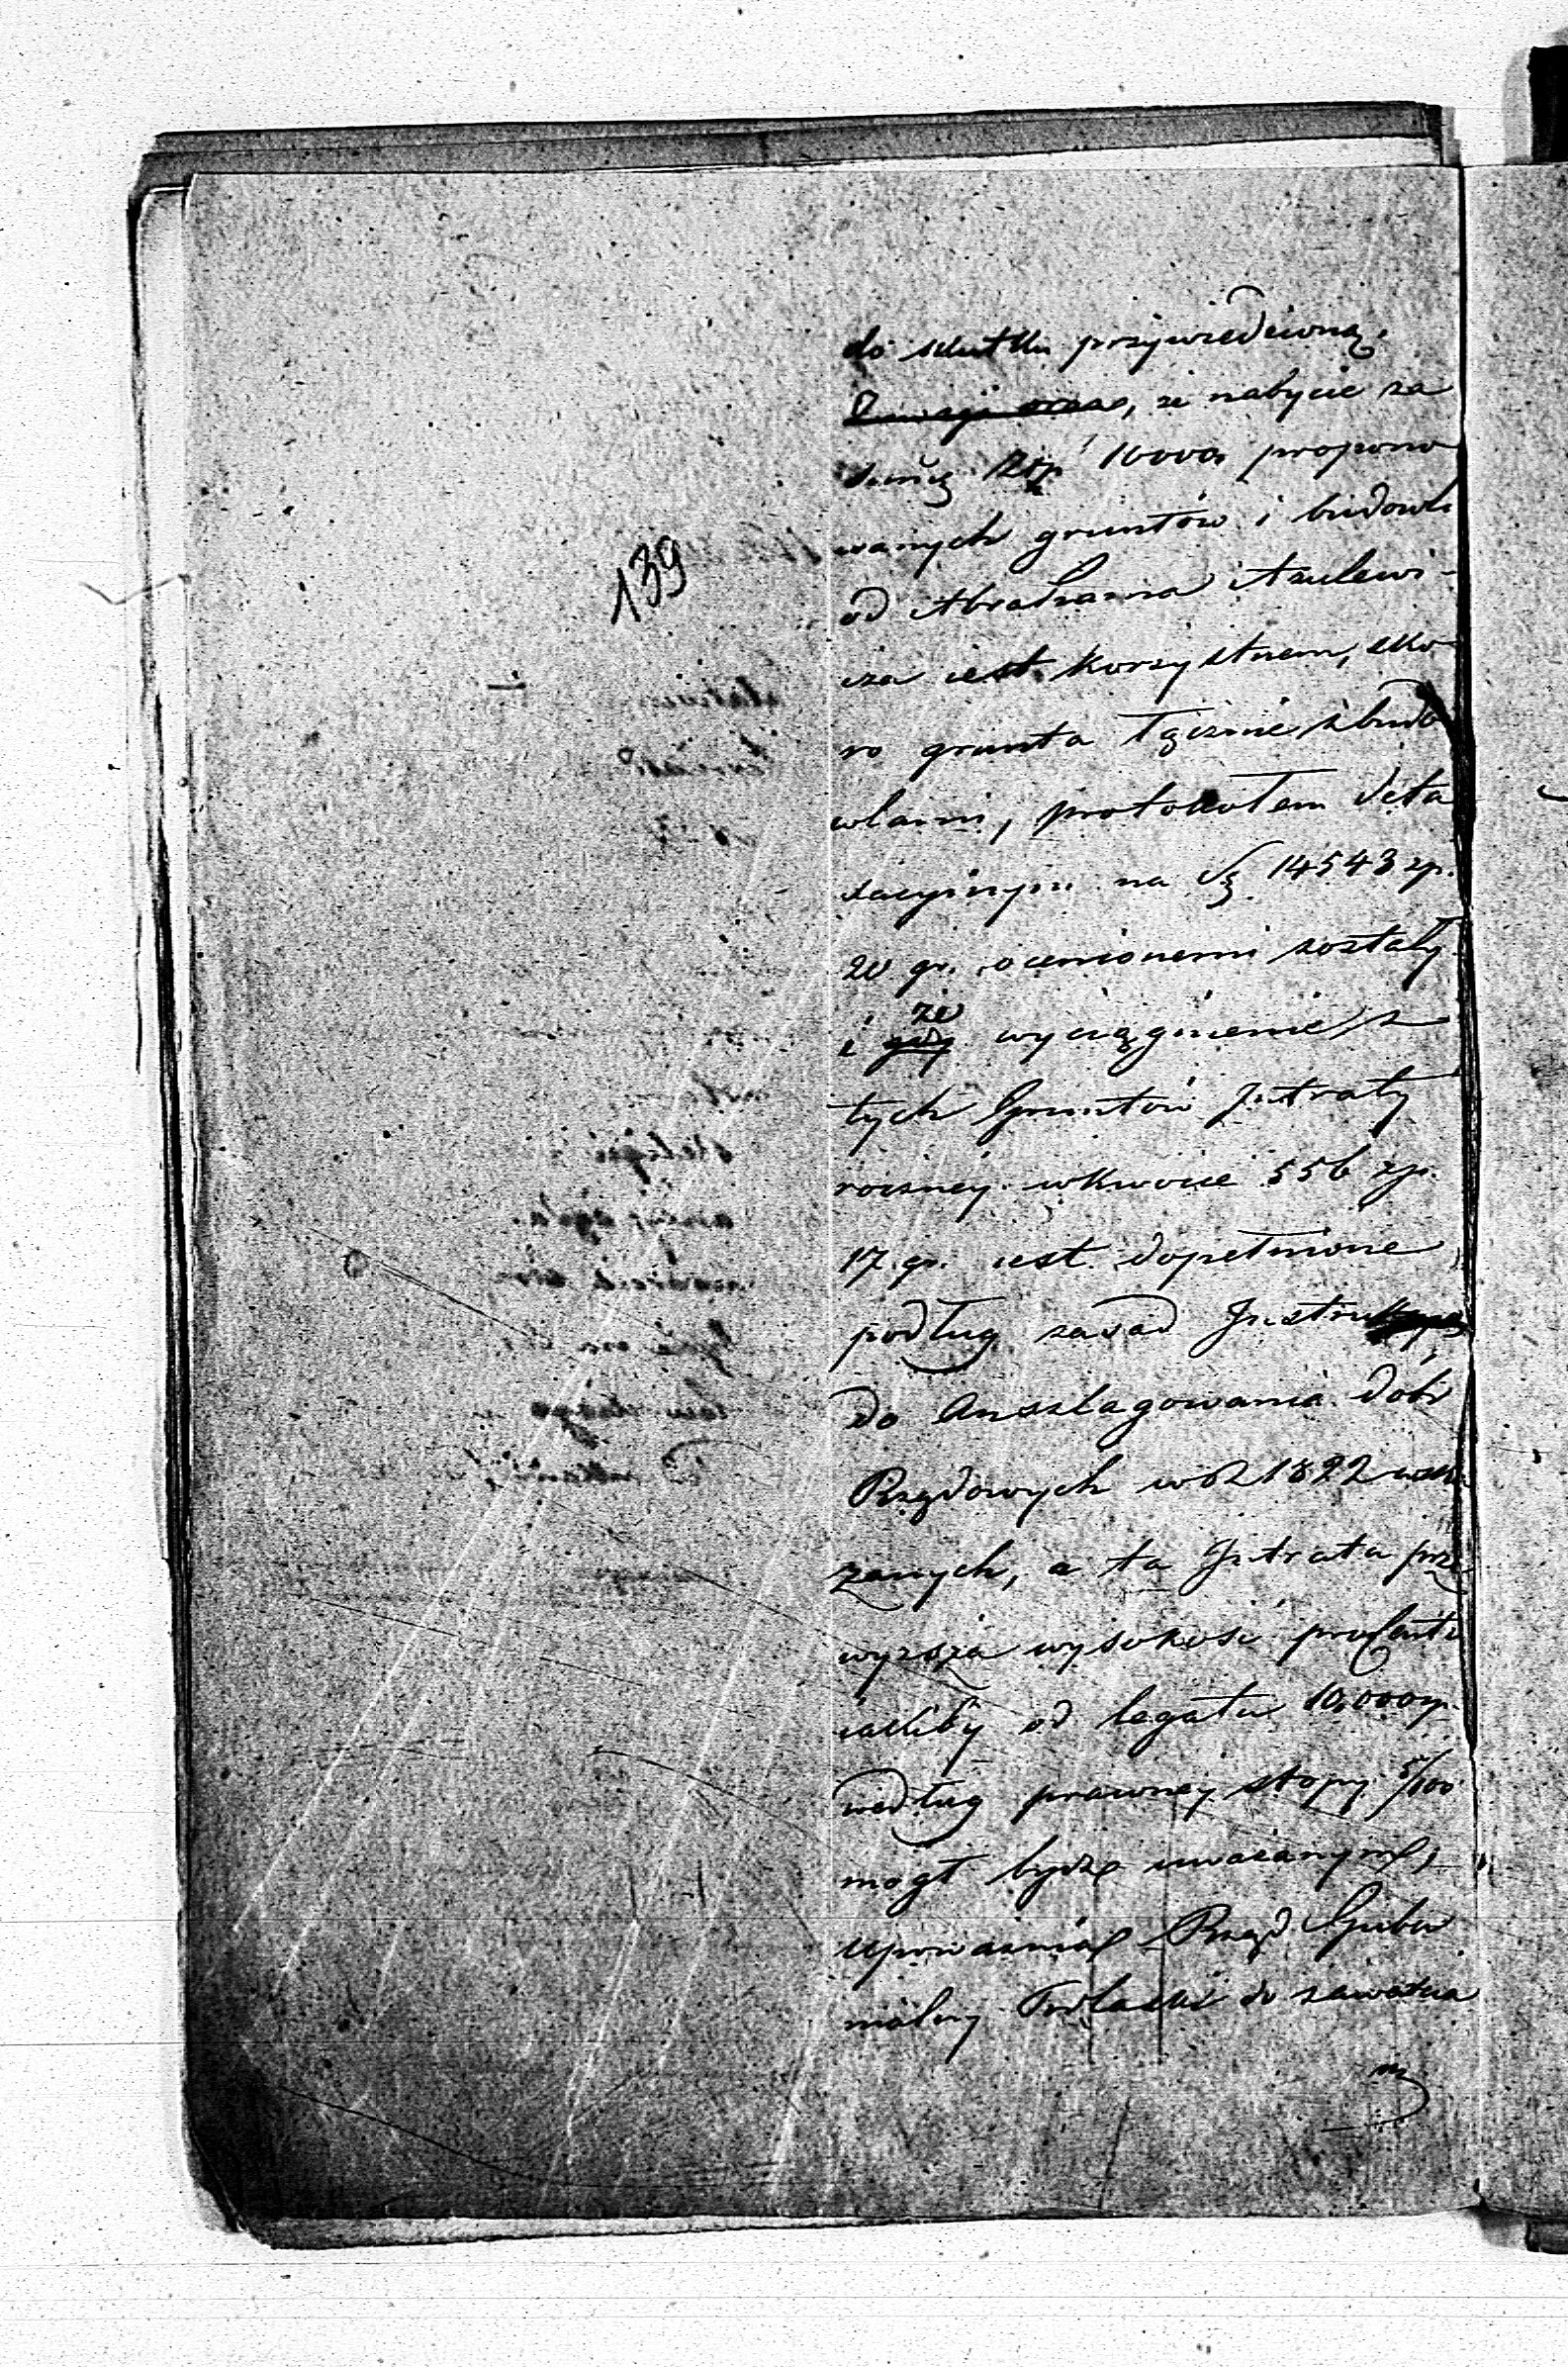 139
do skutku przywiedzioną.
Z uwagi oraz, że nabycie za
sumę Złp. 10000 propono
wanych gruntów i budowli
od Abrahama Azulewi-
cza iest korzystnem, sko-
ro grunta łącznie z budo
wlami, protokołem deta
xacyinym na Sę 14543 zp.
20 gr. ocenionemi zostały
i gdy że wyciągnienie z
tych Gruntów Intraty
roczney w kwocie 556 zp.
17 gr. iest dopełnione
podług zasad Instrukcyi
do Anszlagowania dóbr
Rządowych w R 1822 wska
zanych, a ta Intrata prze
wyższa wysokość procentu
iakiby od legatu 10,000 zp.
według prawney stopy 5/100
mógł bydź uważanym,
upoważnia Rząd Guber
nialny Podlaski do zawarcia